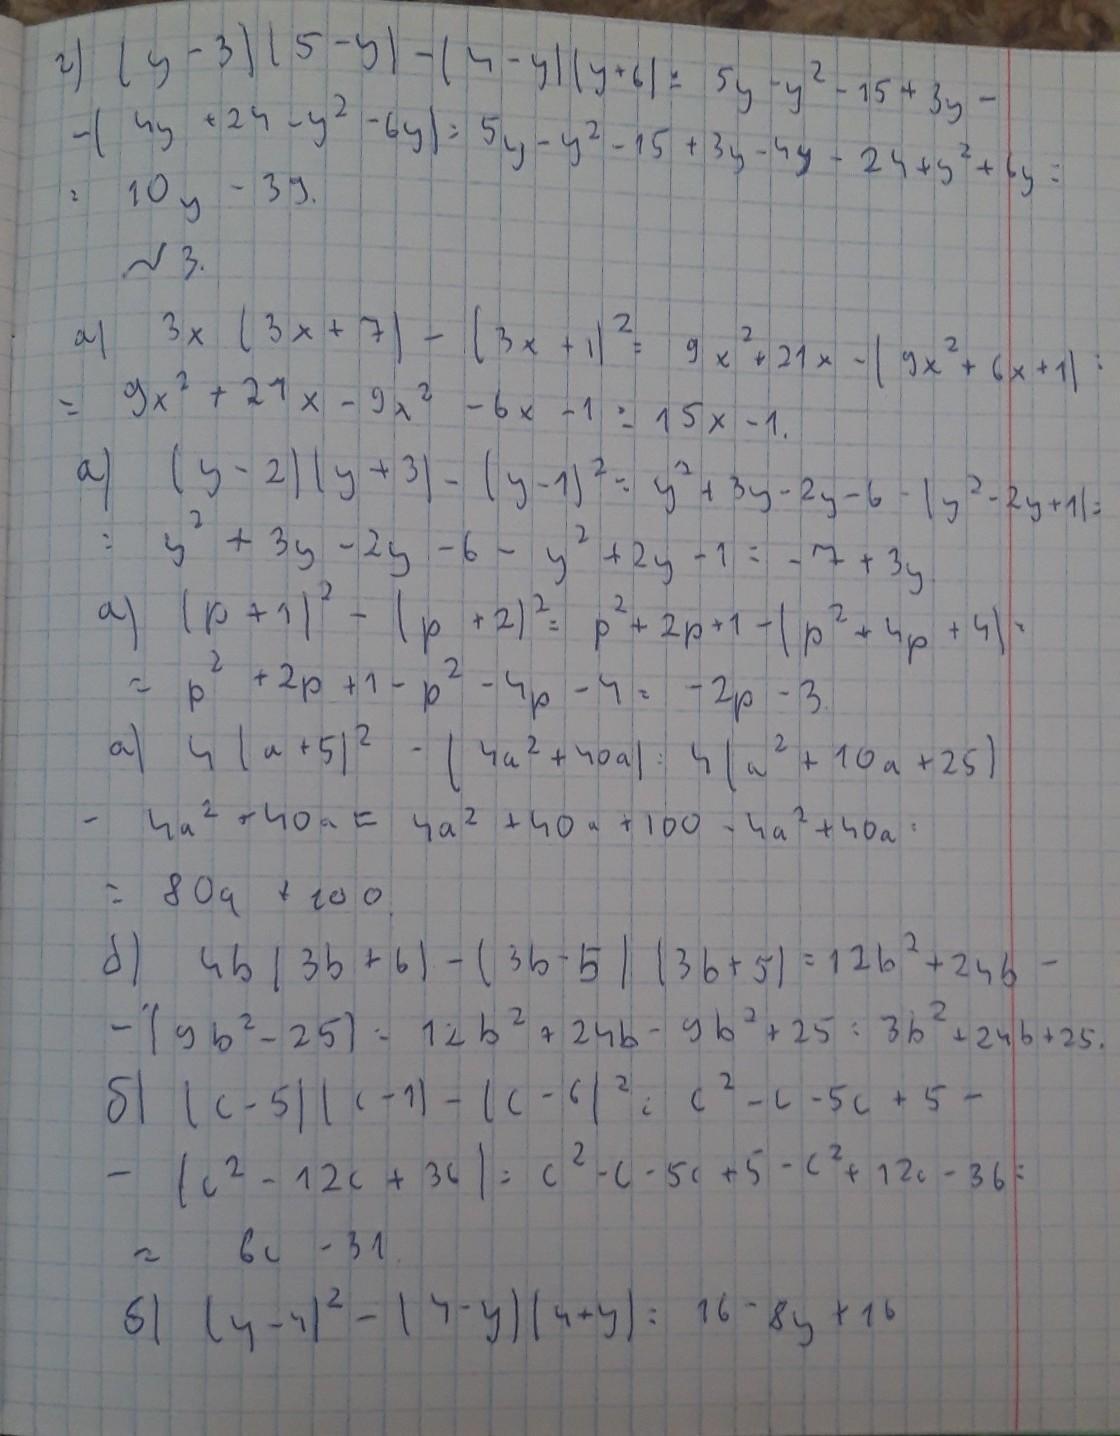 г) (y - 3)(5 - y) - (4 - y)(y + 6) = 5y - y² - 15 + 3y -
- ( 4y + 24 - y² - 6y) = 5y - y² - 15 + 3y - 4y - 24 + y² + 6y =
= 10y - 39.
№ 3.
а) 3x (3x + 7) - (3x + 1)² = 9x² + 21x - (9x² + 6x + 1) =
= 9x² + 21x - 9x² - 6x - 1 = 15x - 1.
а) (y - 2)(y + 3) - (y - 1)² = y² + 3y - 2y - 6 - (y² - 2y + 1) =
= y² + 3y - 2y - 6 - y² + 2y - 1 = -7 + 3y
а) (p + 1)² - (p + 2)² = p² + 2p + 1 - (p² + 4p + 4) =
= p² + 2p + 1 - p² - 4p - 4 = -2p - 3.
а) 4 (a + 5)² - (4a² + 40a) = 4(a² + 10a + 25)
- 4a² + 40a = 4a² + 40a + 100 - 4a² + 40a =
= 80a + 100.
б) 4b (3b + 6) - (3b - 5) (3b + 5) = 12b² + 24b -
- (9b² - 25) = 12b² + 24b - 9b² + 25 = 3b² + 24b + 25.
б) (c - 5)(c - 1) - (c - 6)² = c² - c - 5c + 5 -
- (c² - 12c + 36) = c² - c - 5c + 5 - c² + 12c - 36 =
= 6c - 31.
б) (y - 4)² - (4 - y)(4 + y) = 16 - 8y + 16